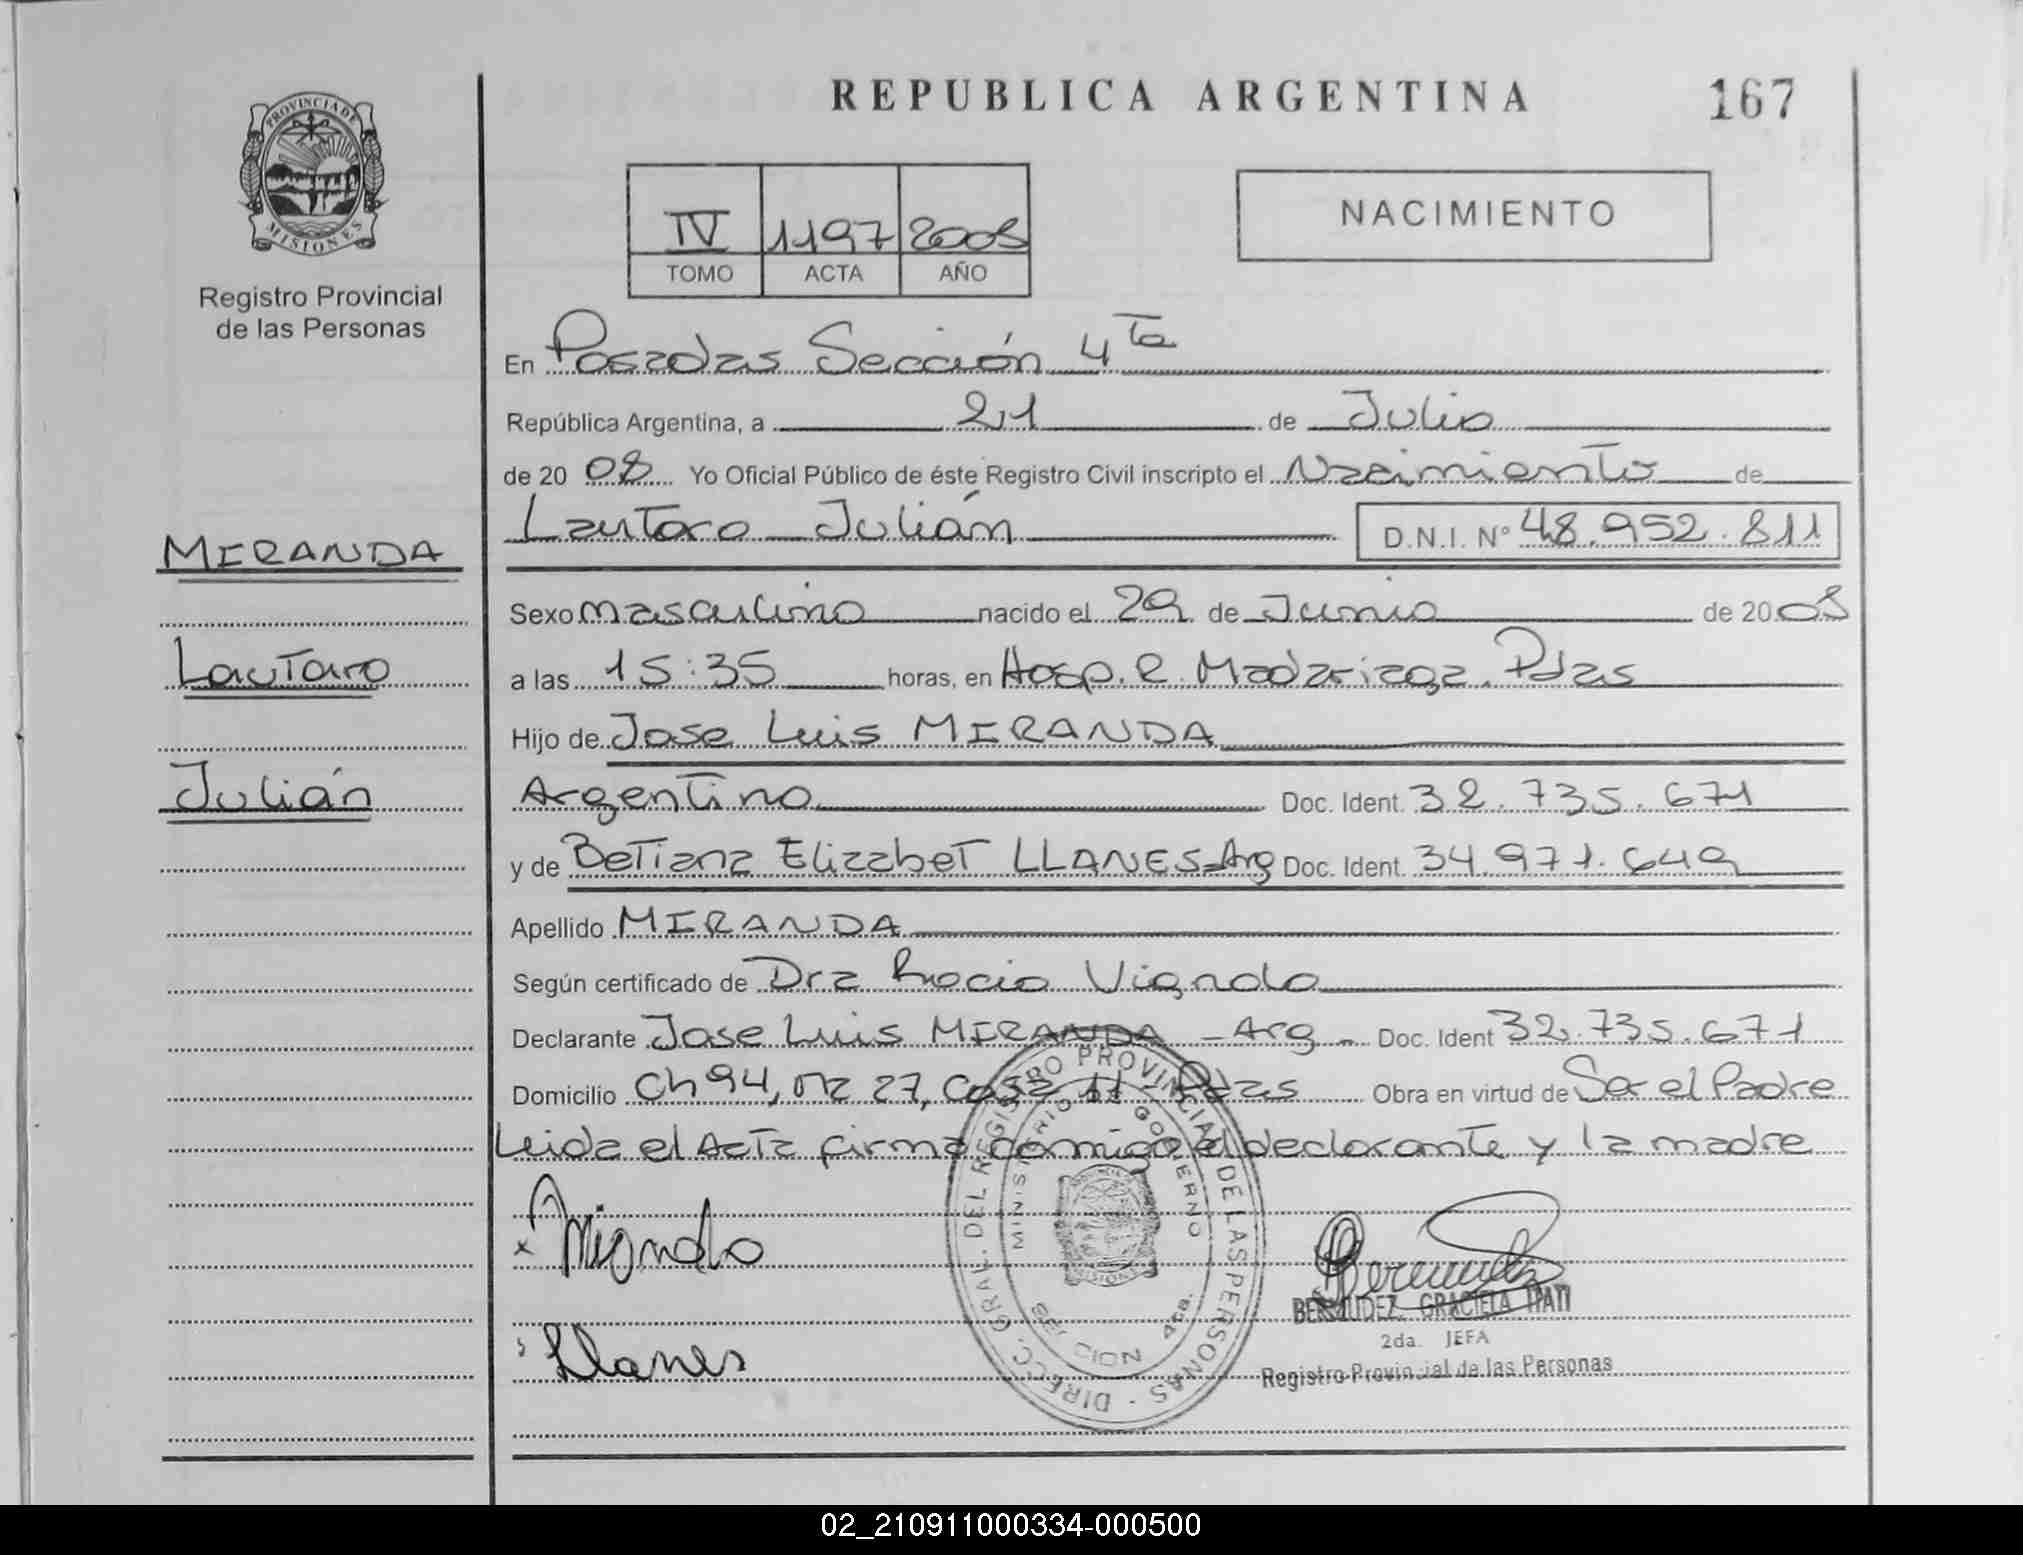 REPUBLICA ARGENTINA
167
PROVINCIA DE
MISIONES
Registro Provincial
de las Personas
IV 1197 2008
TOMO ACTA AÑO
NACIMIENTO
En Posadas Sección 4ta
República Argentina, a 21 de Julio
de 2008 Yo Oficial Público de éste Registro Civil inscripto el Nacimiento de
Lautaro Julián D.N.I. Nº 48.952.811
MIRANDA
Lautaro
Julián
Sexo masculino nacido el 29 de Junio de 2008
a las 15:35 horas, en Hosp. R. Madariaga. Pdas
Hijo de Jose Luis MIRANDA
Argentino Doc. Ident. 32.735.671
y de Betiana Elizabet LLANES-Arg Doc. Ident. 34.971.649
Apellido MIRANDA
Según certificado de Dra Rocio Vignolo
Declarante Jose Luis MIRANDA - Arg - Doc. Ident 32.735.671
Domicilio Ch 94, Mz 27, Casa 11 - Pdas Obra en virtud de Ser el Padre
Leida el Acta firma conmigo el declarante y la madre
DIRECC. GRAL. DEL REGISTRO PROVINCIAL DE LAS PERSONAS
MINISTERIO DE GOBIERNO
MISIONES
SECCION 4ta.
x
Llanes
BERMUDEZ, GRACIELA ITATI
2da. JEFA
Registro Provincial de las Personas
02_210911000334-000500